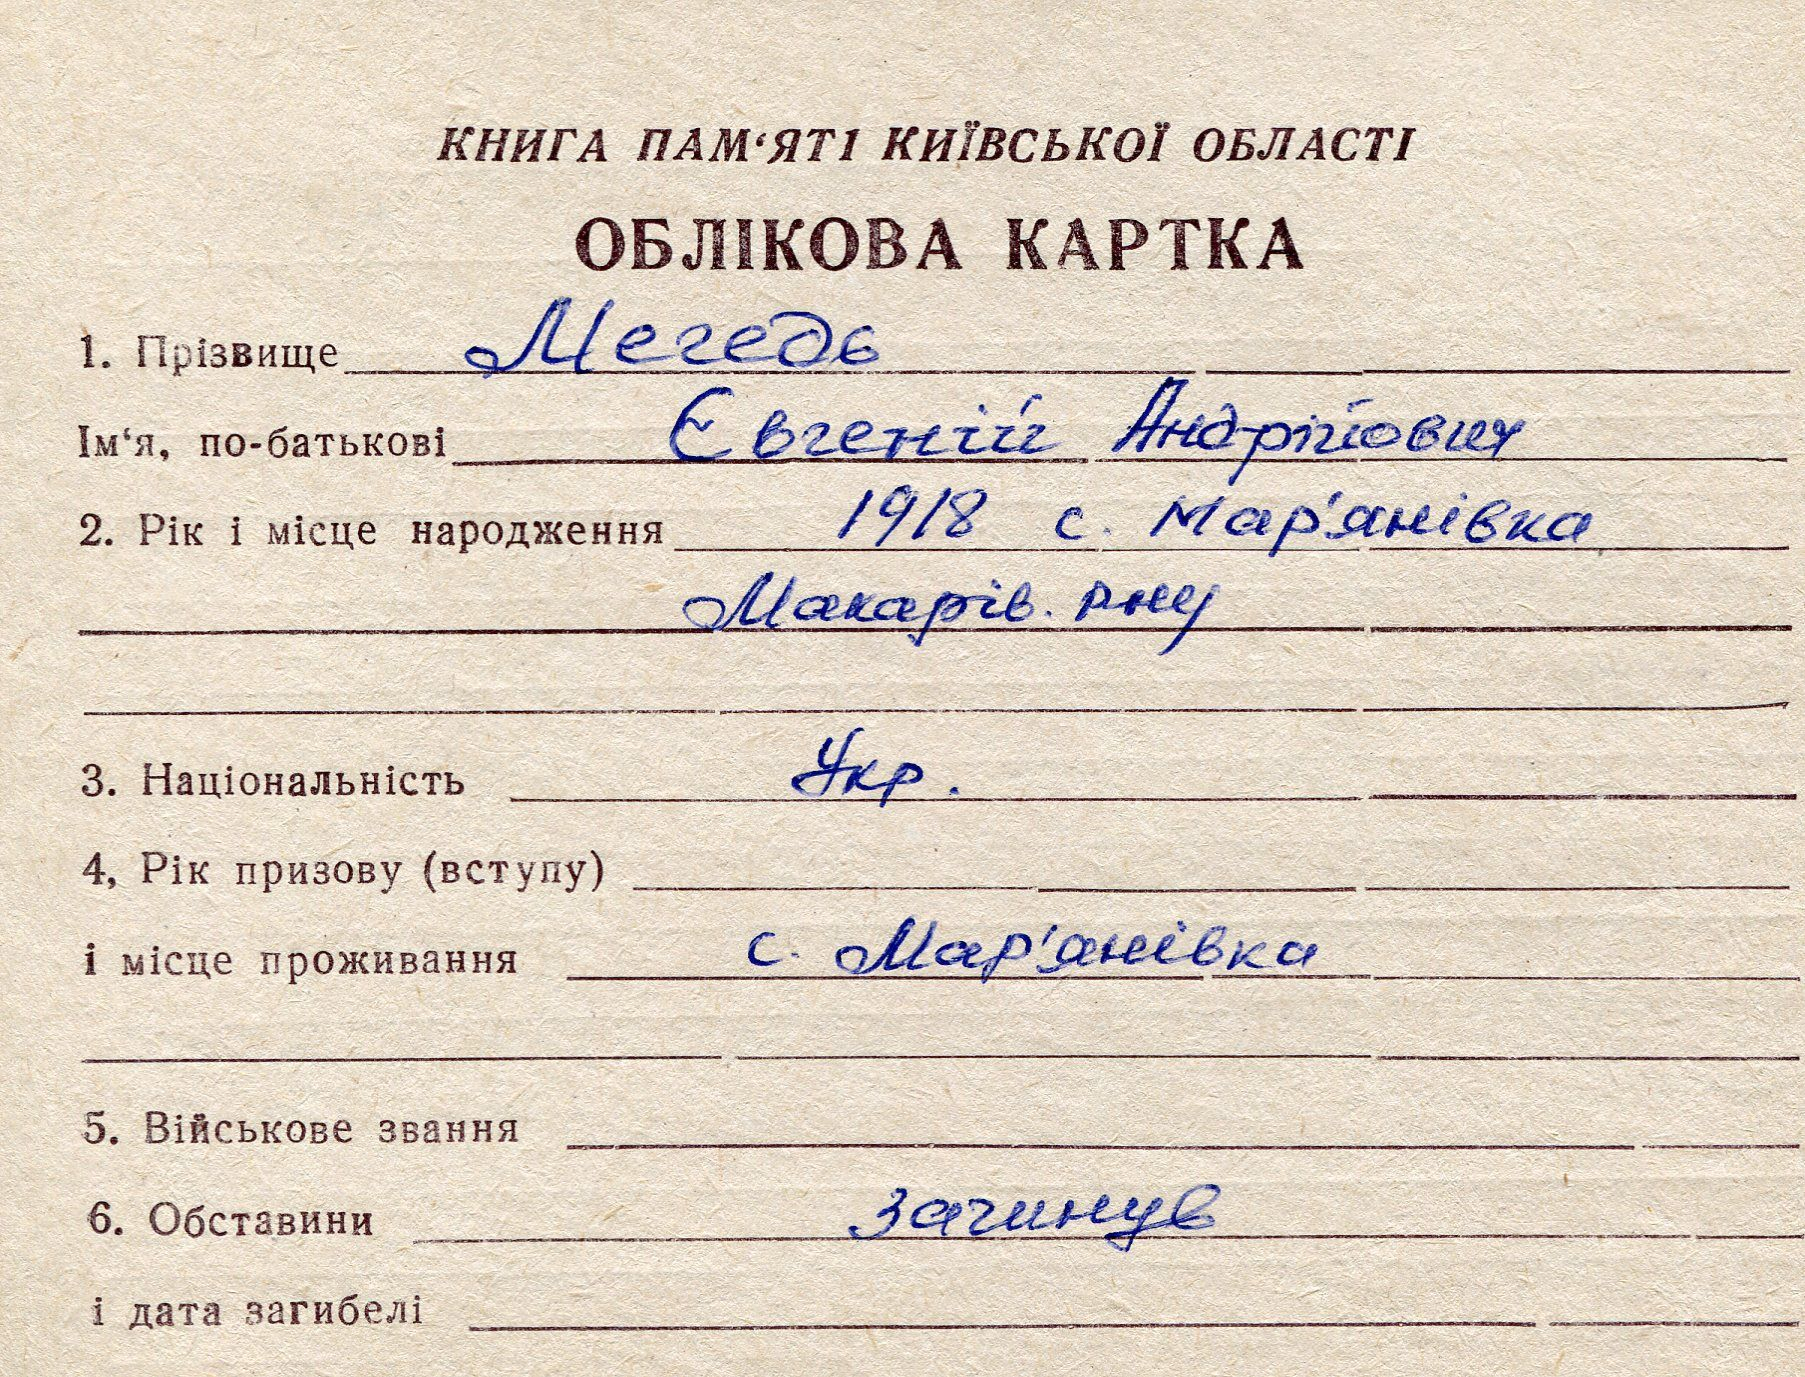 КНИГА ПАМ‘ЯТІ КИЇВСЬКОЇ ОБЛАСТІ
ОБЛІКОВА КАРТКА
1. Прізвище Мегедь
Ім‘я, по-батькові Євгеній Андрійович
2. Рік і місце народження 1918 с. Мар'янівка
Макарів. рну
3. Національність Укр.
4, Рік призову (вступу)
і місце проживання с. Мар'янівка
5. Військове звання
6. Обставини загинув
і дата загибелі